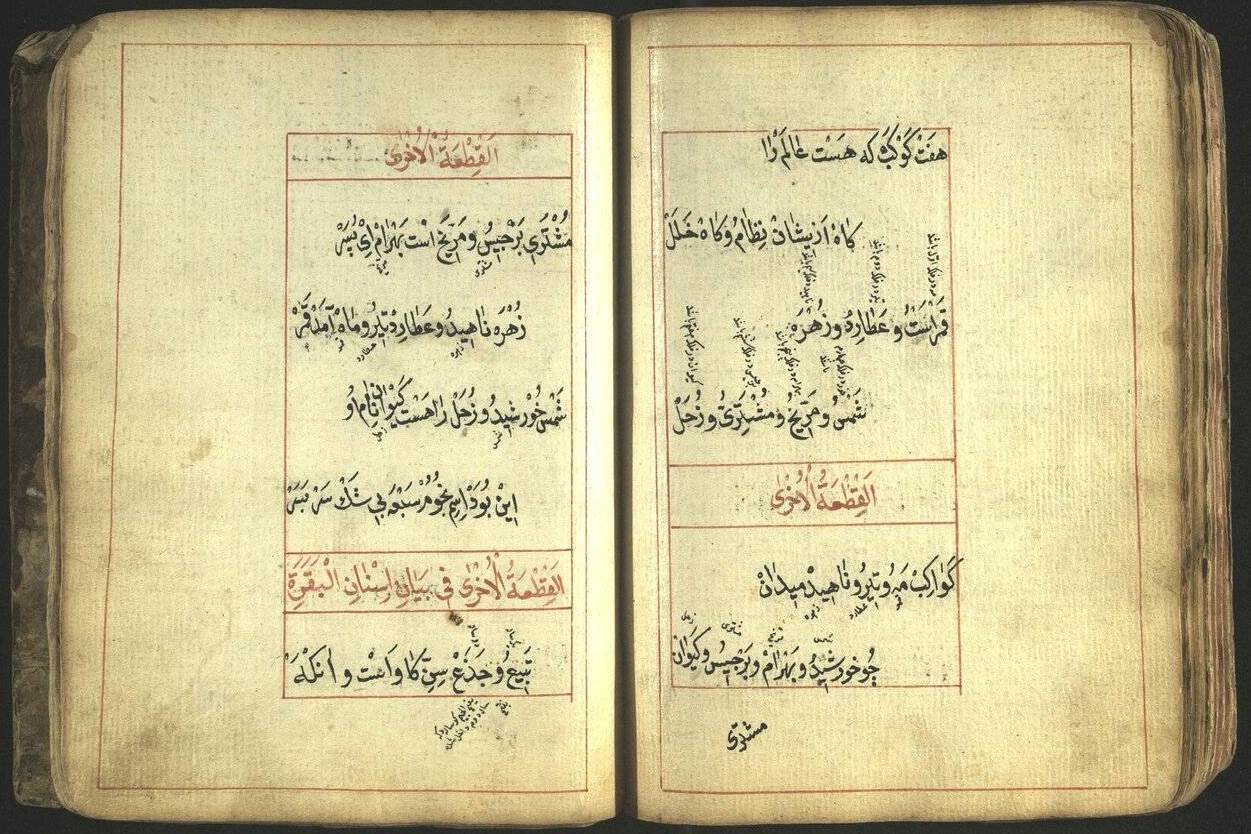 هَفت كَوْكَبْ كه هَسْت عٰالَمْ رٰا
كاه اَزيشٰانْ نِظٰامُ وكٰاه خَلَلْ
قَمَرَاسْتُ و عَطارِدُ و زُهْرَه
شَمْسُ و مَرِّيخُ و مُشْتَرِىُ و زُحَلْ
اَلقِطْعَةُ الْاُخْرٰى
كَوٰاكِبْ مَه و تيرُ و نٰاهيدْ ميدٰانْ
قمر عطارد زهره
شمس مريخ مشترى زحل
چُو خورشيدُ و بَهْرٰامْ و بَرْجيسُ و كَيْوٰانْ
مشترى
اَلقِطْعَةُ الْاُخْرٰى
مُشْتَرى بَرْجيسُ و مَرِّيخ اسْت بَهْرٰامْ اِى پِسَرْ
مشترى مريخ
زُهْرَه نٰاهيدُ و عَطارِدْ تيرُ و مٰاه آمَدْ قَمَرْ
زهره عطارد قمر
شَمْسْ خُورْشيدُ و زُحَلْ رٰا هَسْت كَيْوٰانْ نٰامِ اُو
شمس زحل
اينْ بُوَدْ اِسْمِ نُجُومْ سَبْعَه بى شَكْ سَرْ بَسَرْ
اَلقِطْعَةُ الْاُخْرٰى فى بَيٰانِ اِسْنٰانِ الْبَقَرَةِ
تَبيعُ و جَذَعْ سِنِّ كٰاو اَسْت و اٰنْكَهْ